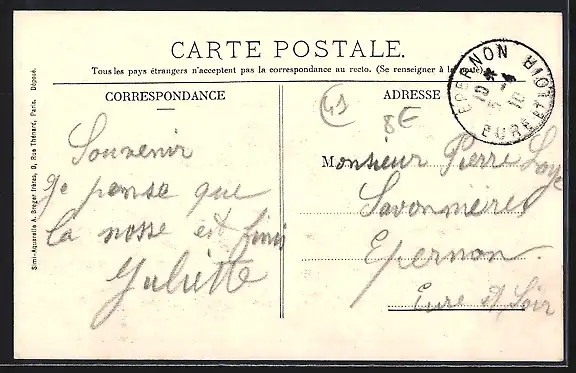 CARTE POSTALE.
Tous les pays étrangers n'acceptent pas la correspondance au recto. (Se renseigner à la Poste).
CORRESPONDANCE
ADRESSE
41
8€
Souvenir
Je pense que
la nosse est finis
Juliette
Monsieur Pierre
Savonnières
Epernon.
Eure et Loir
EPERNON
EURE ET LOIR
Simi-Aquarelle A. Breger frères, 9, Rue Thénard, Paris. Déposé.